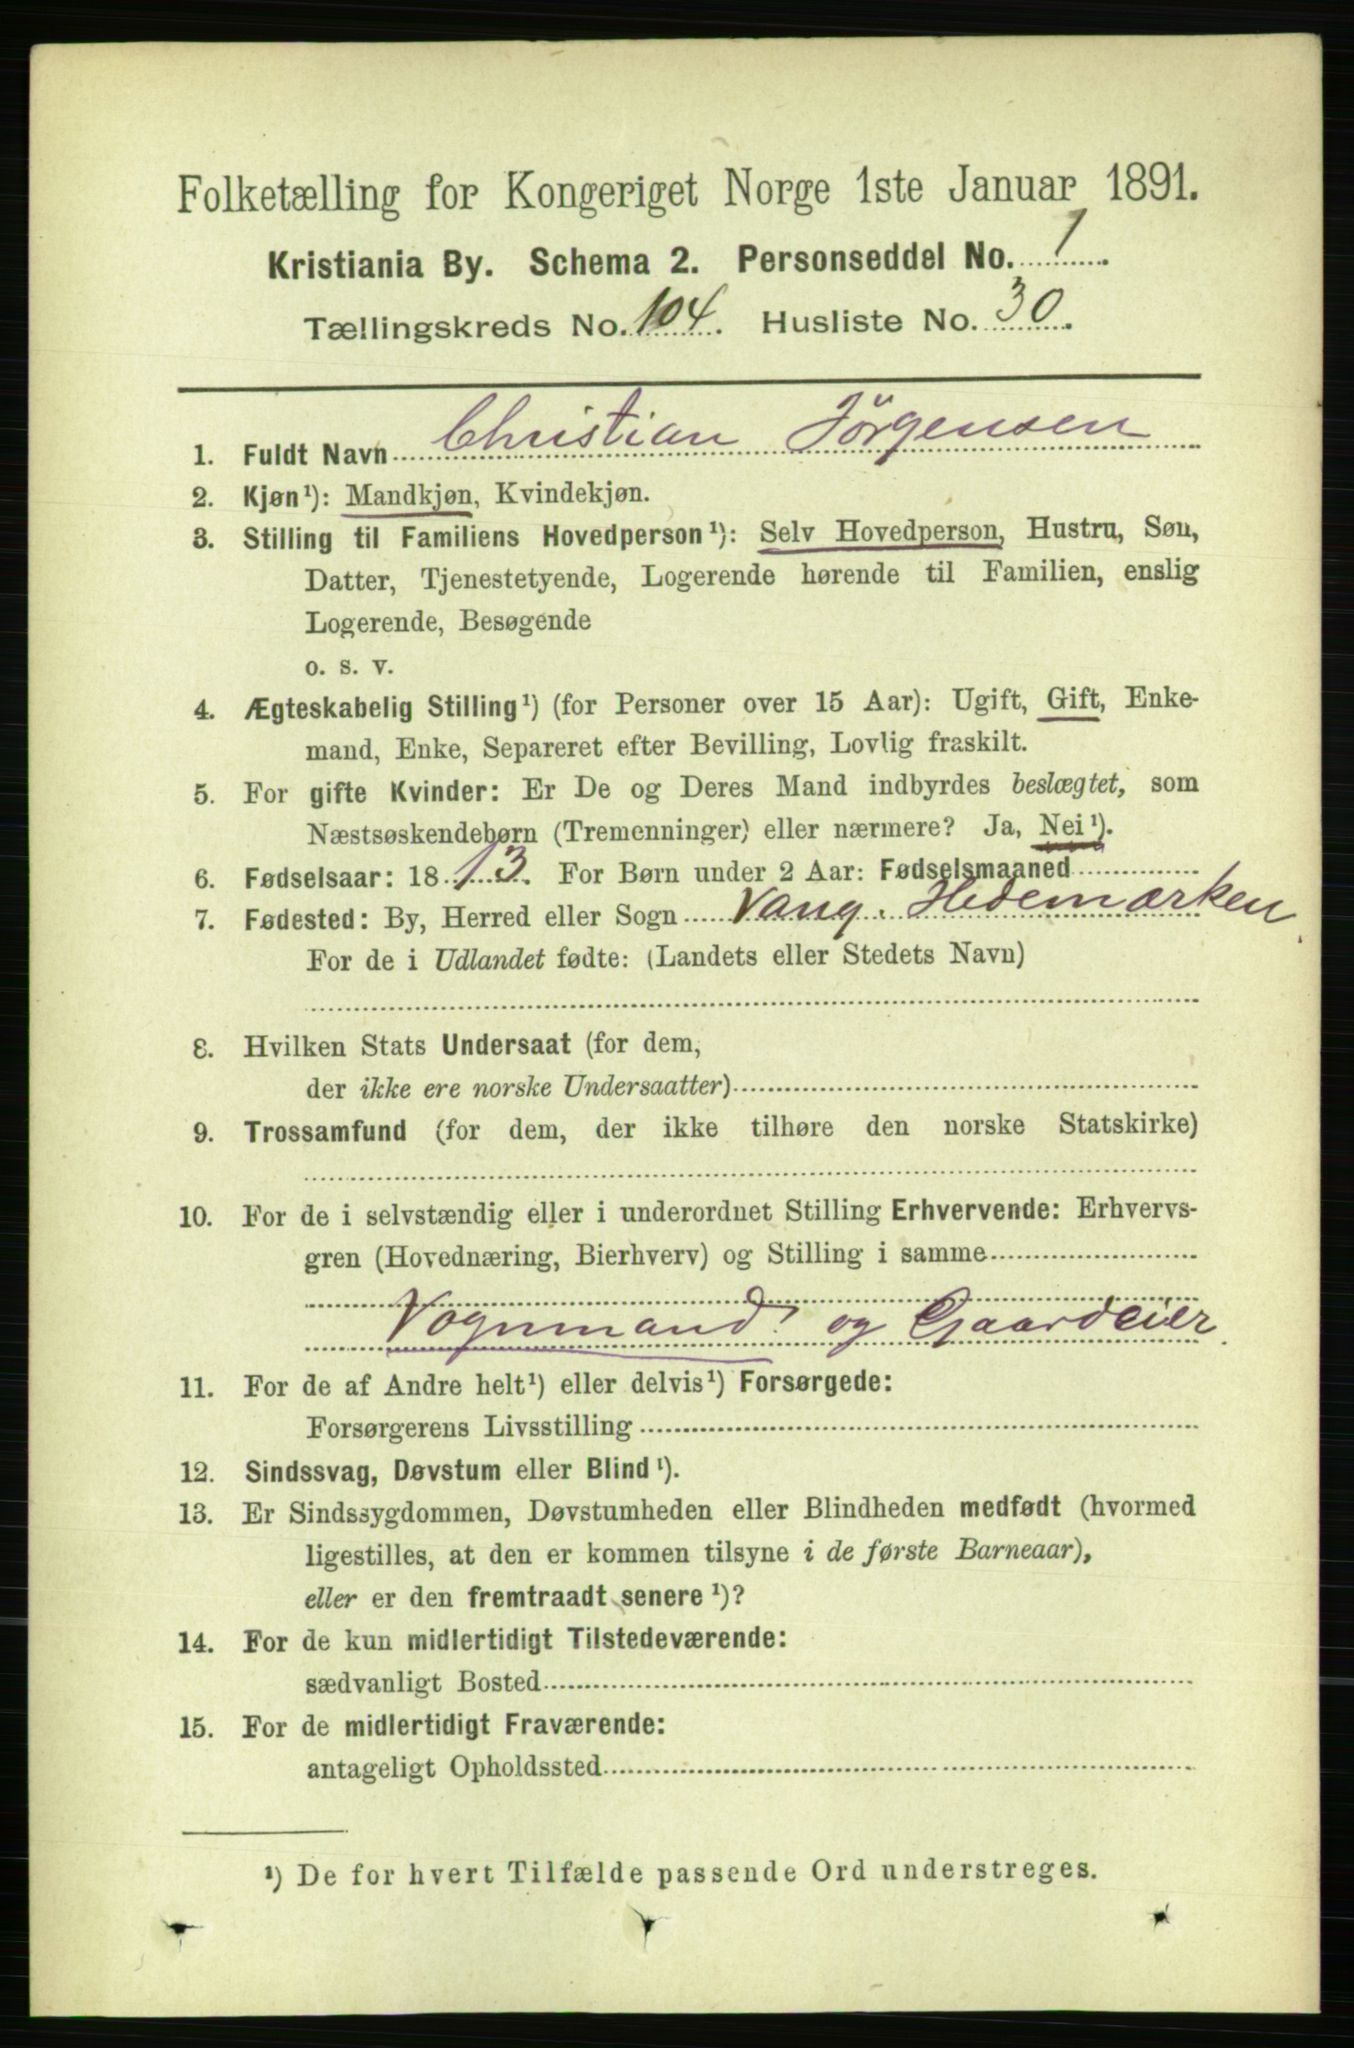 Folketælling for Kongeriget Norge 1ste Januar 1891.
Kristiania By. Schema 2. Personseddel No. 1
Tællingskreds No. 104. Husliste No. 30.
1. Fuldt Navn Christian Jörgensen
2. Kjøn¹): Mandkjøn, Kvindekjøn.
3. Stilling til Familiens Hovedperson¹): Selv Hovedperson, Hustru, Søn,
Datter, Tjenestetyende, Logerende hørende til Familien, enslig
Logerende, Besøgende
o. s. v.
4. Ægteskabelig Stilling¹) (for Personer over 15 Aar): Ugift, Gift, Enke-
mand, Enke, Separeret efter Bevilling, Lovlig fraskilt.
5. For gifte Kvinder: Er De og Deres Mand indbyrdes beslægtet, som
Næstsøskendebørn (Tremenninger) eller nærmere? Ja, Nei¹).
6. Fødselsaar: 1813. For Børn under 2 Aar: Fødselsmaaned
7. Fødested: By, Herred eller Sogn Vang. Hedemarken
For de i Udlandet fødte: (Landets eller Stedets Navn)
8. Hvilken Stats Undersaat (for dem,
der ikke ere norske Undersaatter)
9. Trossamfund (for dem, der ikke tilhøre den norske Statskirke)
10. For de i selvstændig eller i underordnet Stilling Erhvervende: Erhvervs-
gren (Hovednæring, Bierhverv) og Stilling i samme
Vognmand og Gaardeier.
11. For de af Andre helt¹) eller delvis¹) Forsørgede:
Forsørgerens Livsstilling
12. Sindssvag, Døvstum eller Blind¹).
13. Er Sindssygdommen, Døvstumheden eller Blindheden medfødt (hvormed
ligestilles, at den er kommen tilsyne i de første Barneaar),
eller er den fremtraadt senere¹)?
14. For de kun midlertidigt Tilstedeværende:
sædvanligt Bosted
15. For de midlertidigt Fraværende:
antageligt Opholdssted
¹) De for hvert Tilfælde passende Ord understreges.